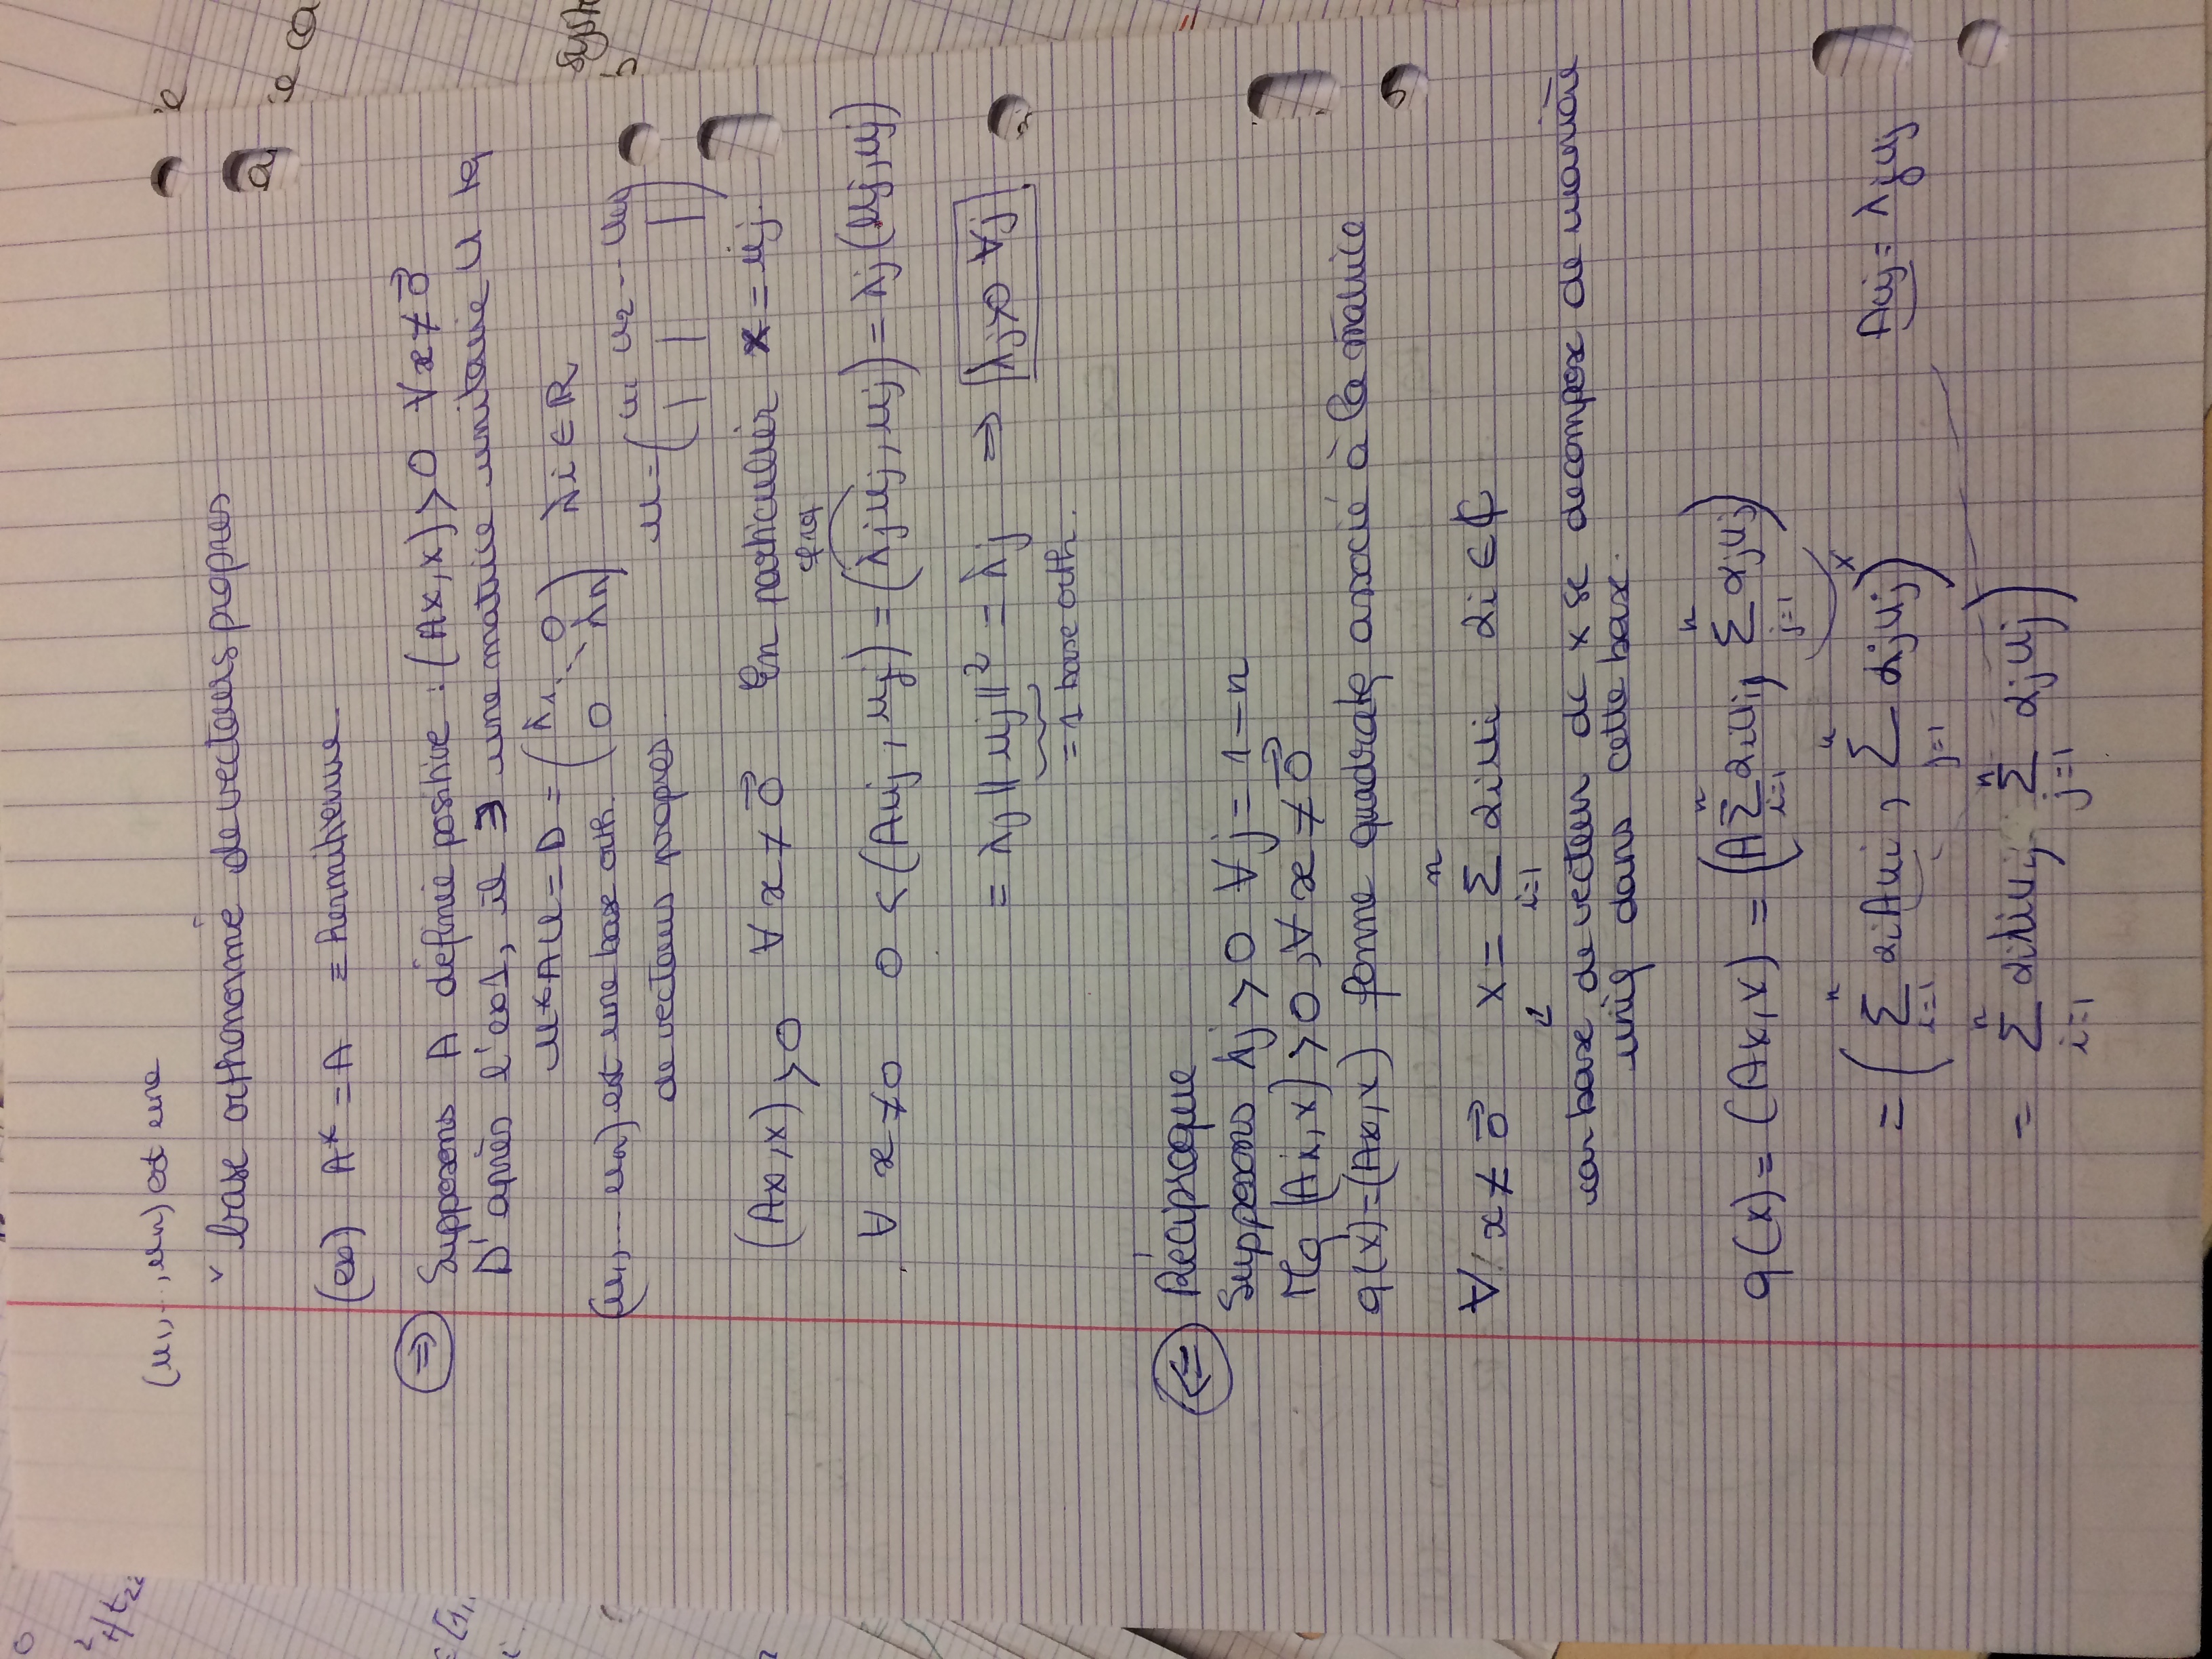 (u1, .., un) est une
base orthonormé de vecteurs propres
(ex) A* = A = hermitienne.
⇒ Supposons A définie positive : (Ax, x) > 0 ∀x ≠ 0⃗
D'après l'ex1, il ∃ une matrice unitaire U tq
U*AU = D = (λ1 0 0 λn) λi ∈ ℝ
(u1, ... un) est une base orth.
de vecteurs propres.
U = (u1 u2 -- un)
(Ax, x) > 0 ∀ x ≠ 0⃗ En particulier x = uj.
∀ x ≠ 0 0 < (Auj, uj) = (λjuj, uj) = λj(uj, uj)
= λj ‖uj‖² = λj ⇒ λj>0 ∀j
= 1 base orth.
⇐ Réciproque
Supposons λj > 0 ∀j = 1 – n
Mq (Ax, x) > 0, ∀ x ≠ 0⃗
q(x) = (Ax, x) forme quadratq associé à la matrice
∀ x ≠ 0⃗ x = n Σ i=1 αiui αi ∈ ℂ
car base de vecteur dc x se decompose de manière
uniq dans cette base.
q(x) = (Ax, x) = (A n Σ i=1 αiui, n Σ j=1 αjuj)
= ( n Σ i=1 αiAui, n Σ j=1 αjuj) x Auj = λjuj
= n Σ i=1 αiλiui, n Σ j=1 αjuj)